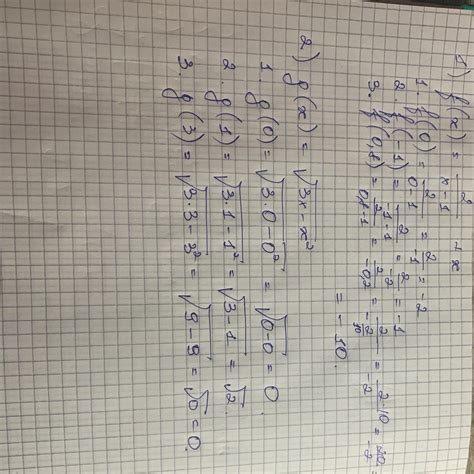 1) f(x) = 2/(x-1)
1. f(0) = 2/(0-1) = 2/-1 = -2
2. f(-1) = 2/(-1-1) = 2/-2 = -1
3. f(0,8) = 2/(0,8-1) = 2/-0,2 = 2/(-2/10) = 2·10/-2 = 20/-2 =
= -10.
2) f(x) = √(3x-x²)
1. f(0) = √(3·0-0²) = √(0-0) = 0.
2. f(1) = √(3·1-1²) = √(3-1) = √2.
3. f(3) = √(3·3-3²) = √(9-9) = √0 = 0.